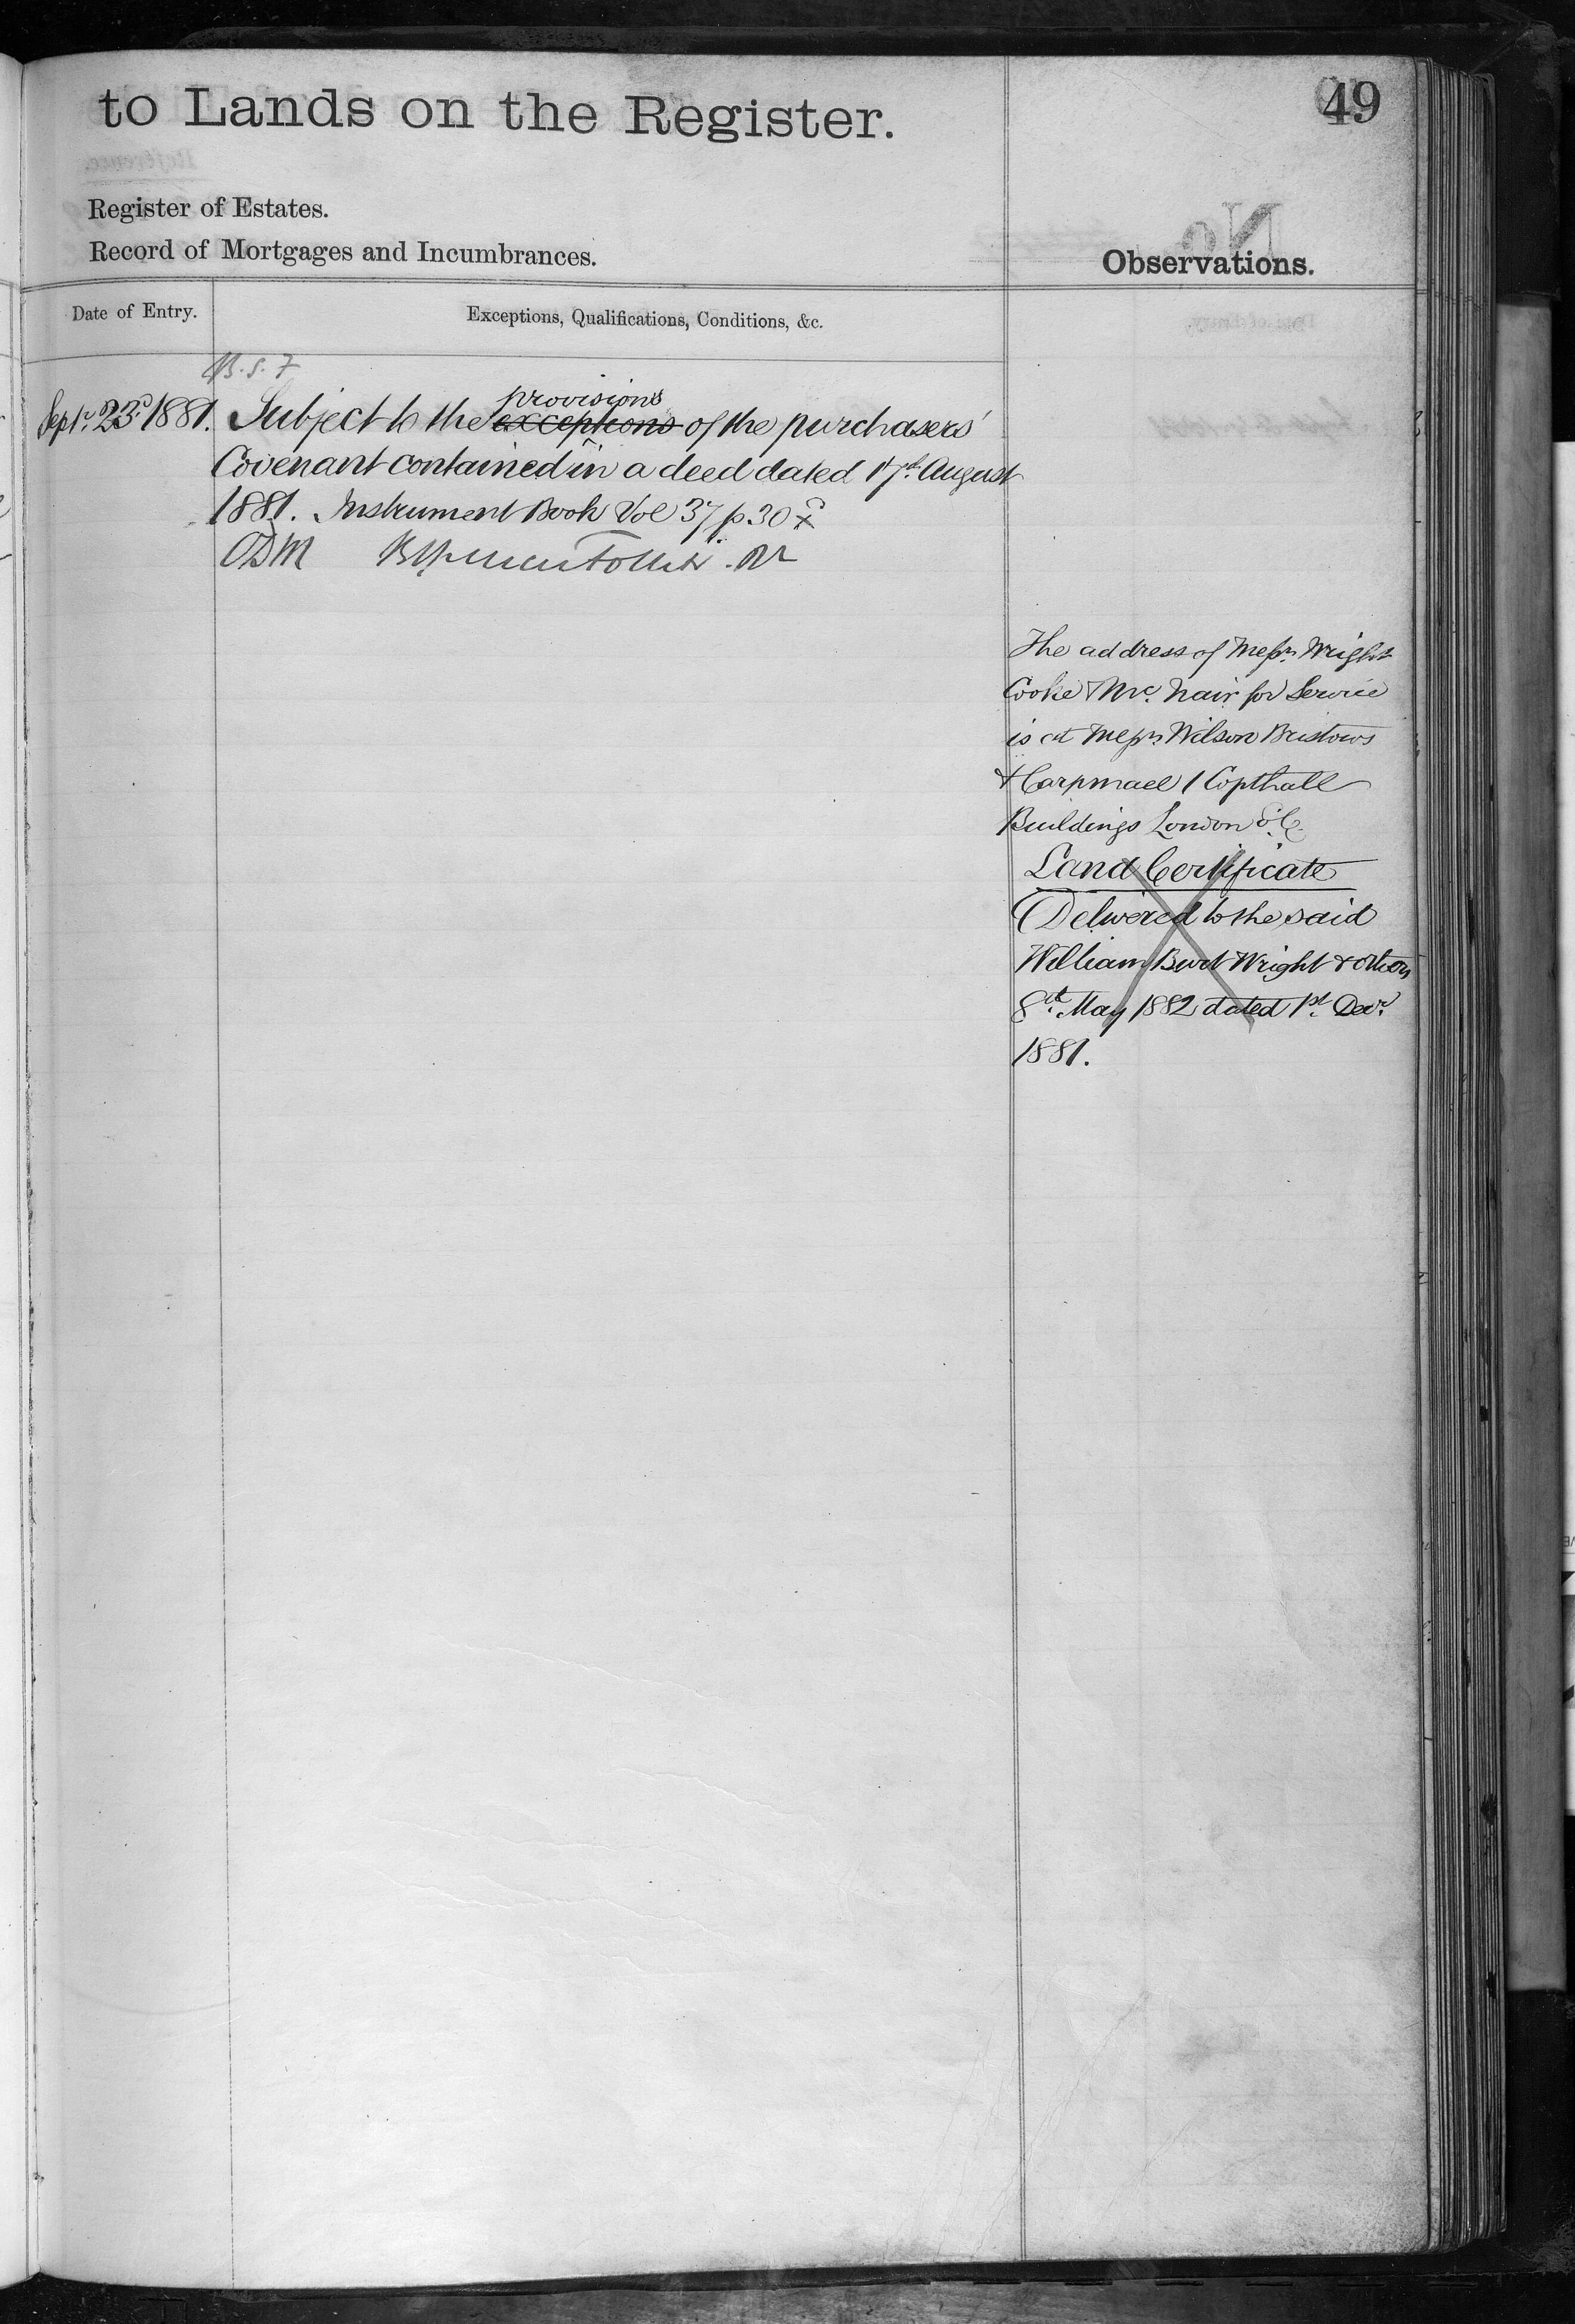 to Lands on the Register.
49
Register of Estates.
Record of Mortgages and Incumbrances.
Observations.
Date of Entry.
Exceptions, Qualifications, Conditions, &c.
B.S. 7
provisions
Septr. 23d. 1881. Subject to the exceptions of the purchasers'
Covenant contained in a deed dated 17th. August
1881. Instrument Book Vol 37 p. 30
The address of Messrs. Wright
Cooke & Mc. Nair for Service
is at Messrs. Wilson Bristows
& Carpmael 1 Copthall
Buildings London E.C.
Land Certificate
Delivered to the said
William Burt Wright & others
8th. May 1882 dated 1st. Decr.
1881.